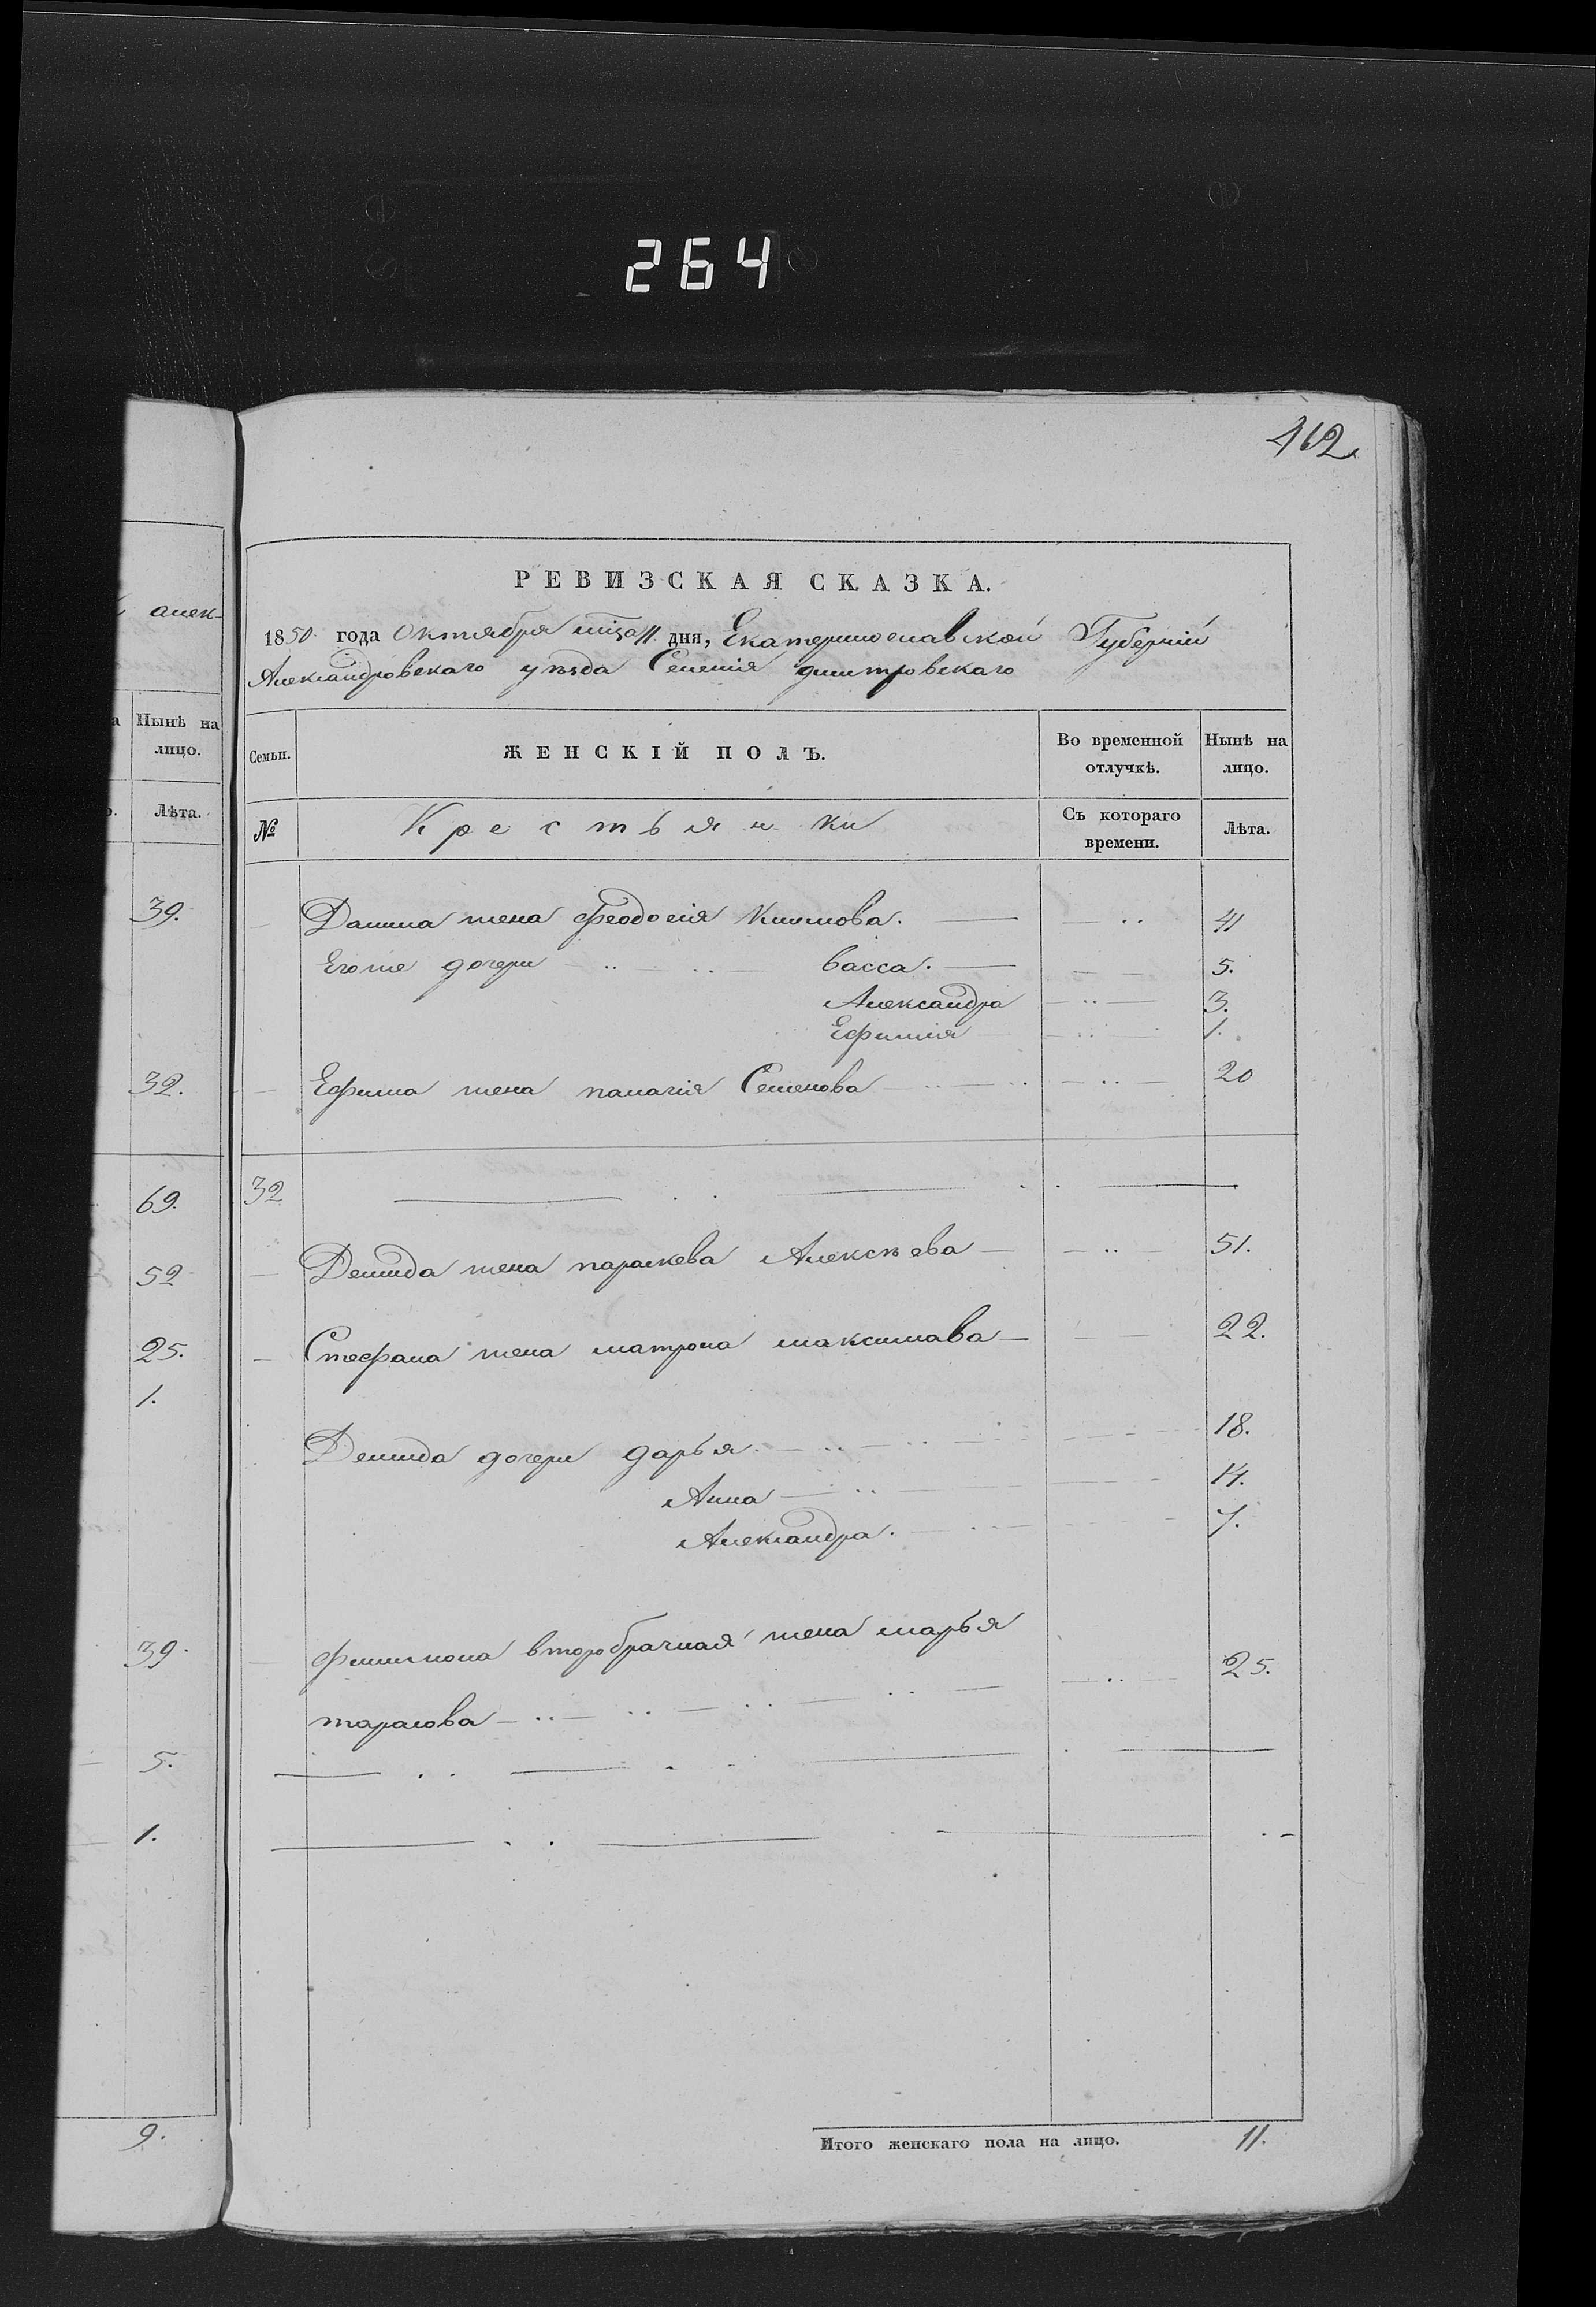 264
412
РЕВИЗСКАЯ СКАЗКА.
1850 года Октября дня, Екатеринославской Губерніи
Александровскаго уѣзда Селенія дмитровскаго
алек-
Нынѣ на лицо.
Лѣта.
39.
32.
69.
52
25.
1.
39.
5.
1.
9.
Семьи. ЖЕНСКІЙ ПОЛЪ. Во временной отлучкѣ. Нынѣ на лицо.
№ Крестьянки Съ котораго времени. Лѣта.
Данила жена феодосія Климова. 41
Егоже дочери васса. 5.
Александра 3.
Ефимія 1.
Ефима жена палагія Семенова 20
32
Демида жена параскева Алексѣева 51.
Стефана жена матрона максимава 22.
Демида дочери дарья 18.
Анна 14.
Александра. 7.
филимона второбрачная жена марья 25.
тарасова
Итого женскаго пола на лицо. 11.